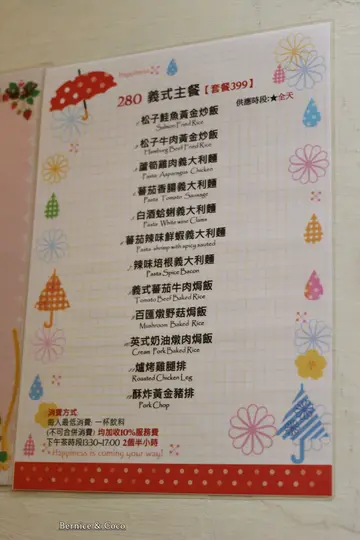 Happiness
280 義式主餐【套餐399】
供應時段:★全天
松子鮭魚黃金炒飯
Salmon Fried Rice
松子牛肉黃金炒飯
Hamburg Beef Fried Rice
蘆筍雞肉義大利麵
Pasta Asparagus Chicken
蕃茄香腸義大利麵
Pasta Tomato Sausage
白酒蛤蜊義大利麵
Pasta White wine Clams
蕃茄辣味鮮蝦義大利麵
Pasta shrimp with spicy sauted
辣味培根義大利麵
Pasta Spice Bacon
義式蕃茄牛肉焗飯
Tomato Beef Baked Rice
百匯燉野菇焗飯
Mushroom Baked Rice
英式奶油燉肉焗飯
Cream Pork Baked Rice
爐烤雞腿排
Roasted Chicken Leg
酥炸黃金豬排
Pork Chop
消費方式
每人最低消費: 一杯飲料
(不可合併消費) 均加收10%服務費
下午茶時段13:30~17:00 2個半小時
Happiness is coming your way!
Bernice & Coco